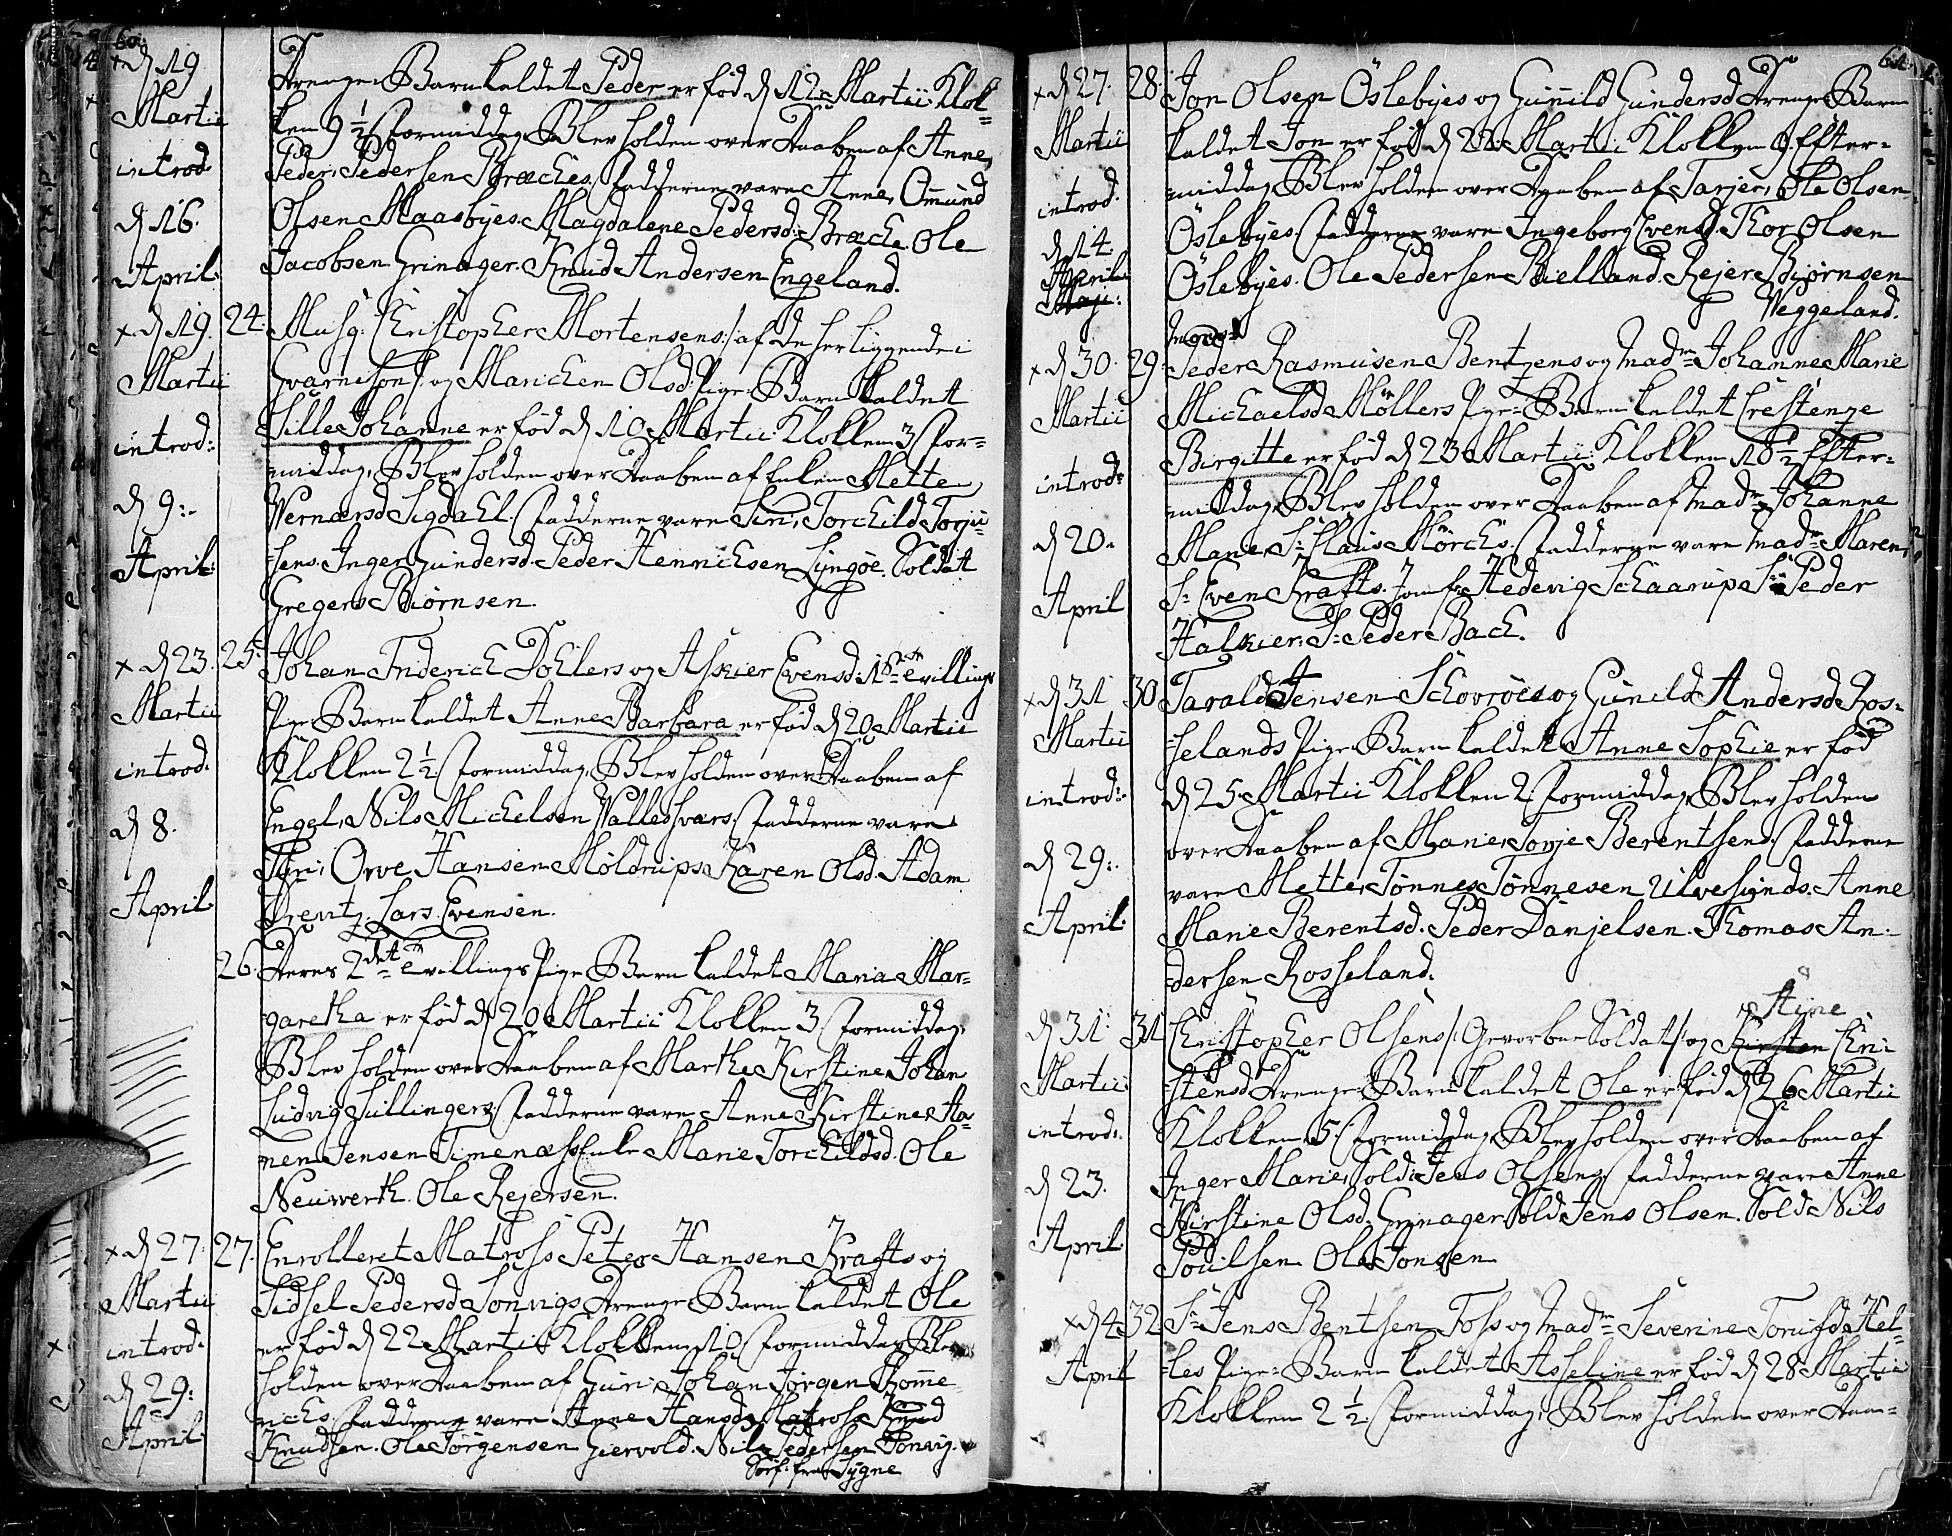 60.
x d 19 Martii introd: d 16. April
Drenge-Barn kaldet Peder er fød d 12 Martii Klok=
ken 9 1/2 Formiddag, Blev holden over Daaben af Anne,
Peder Pedersen Bræches. Fadderne vare Anne, Omund
Olsen Maasbyes. Magdalene Pedersd: Bræche. Ole
Jacobsen Grinager. Knud Andersen Engeland.
x d 19. Martii introd: d 9:- April:
24. Musq: Christopher Mortensens /: af de her liggende i
Gvarnison :/ og Marichen Olsd: Pige-Barn kaldet
Sille Johanne er fød d 10 Martii Klokken 3 For=
middag, Blev holden over Daaben af Enken Mette
Wernersd Sigdahl. Fadderne vare Siri, Torchild Torju=
sens. Inger Gundersd. Peder Hennichsen Lyngøe. Soldat
Gregers Biørnsen.
x d 23. Martii introd. d 8. April
25. Johan Friderich Döhlers og Asker Evensd: 1ste tvillings
Pige-Barn kaldet Anne Barbara er fød d 20 Martii
Klokken 2 1/2 Formiddag, Blev holden over Daaben af
Engel, Nils Michelsen Walles hværs. Fadderne vare
Siri, Ove Hansen Møldrups. Karen Olsd. Adam
Drentz. Lars Evensen.
26. Deres 2det tvillings Pige-Barn kaldet Maria Mar=
garetha er fød d 20 Martii Klokken 3 Formiddag,
Blev holden over Daaben af Marthe Kirstine Johan
Ludvig Süllingers. Fadderne vare Anne Kirstine Ha=
nen Jensen Timenæss Enke Marie Torchildsd. Ole
Neuwerth. Ole Rejersen.
x d 27. Martii introd: d 29: April
27. Enrolleret Matross Peter Hansen Krafts og
Sidsel Pedersd Sonvigs Drenge-Barn kaldet Ole
er fød d 22 Martii Klokken 10 Formiddag Blev
holden over Daaben af Guri, Johan Jørgen
Fadderne vare Anne Hansd. Matross Knud
Knudsen. Ole Jørgensen Giervold. Nils Pedersen Sonvig.
Tygne
61.
x d 27. Martii introd. d 14. April
28. Jon Olsen Öslebyes og Gunnild Gundersd Drenge-Barn
kaldet Jon er fød d 22 Martii Klokken 9 Efter=
middag, Blev holden over Daaben af Tarjer, Ole Olsen
Öslebyes. Fadderne vare Ingeborg Evensd. Thor Olsen
Öslebyes. Ole Pedersen Bielland. Rejer Biørnsen
Weggeland.
x d 30. Martii introd: d 20. April
29. Peder Rasmusen Bentzens og Madm Johanne Marie
Michaelsd Möllers Pige-Barn kaldet Chrestenze
Birgitte er fød d 23 Martii Klokken 10 1/2 Efter=
middag, Blev holden over Daaben af Madm Johanne
Marie, Sr Claus Mörchs. Fadderne vare Madm Maren,
Sr Even Krafts. Jomfr: Hedevig Schaarup. Sr Peder
Halkier. Sr Peder Bach.
x d 31 Martii introd: d 29:. April
30. Tarald Jensen Schovrøes og Gunild Andersd Ros=
selands Pige-Barn kaldet Anne Sophie er fød
d 25 Martii Klokken 2. Formiddag, Blev holden
over Daaben af Marie, Torje Berentsens. Fadderne
vare Mette, Tønnes Tønnesen Ulvesunds. Anne
Marie Berentsd. Peder Danjelsen. Thomas An=
dersen Rosseland.
d 31: Martii introd: d 23. April
31. Christopher Olsens /: Gevorben Soldat :/ og Kirsten Stine Chri=
stensd Drenge-Barn kaldet Ole er fød d 26 Martii
Klokken 5. Formiddag, Blev holden over Daaben af
Inger Marie, Sold: Jens Olsens. Fadderne vare Anne
Kirstine Olsd. Grinager Sold Jens Olsen. Sold Nils
Poulsen. Ole Jonsen.
x d 4 April
32. Sr Jens Bentsen Foss og Madm Severine Torufsd Hel=
les Pige-Barn kaldet Asseline er fød d 28 Martii
Klokken 2 1/2 Formiddag, Blev holden over Daa=